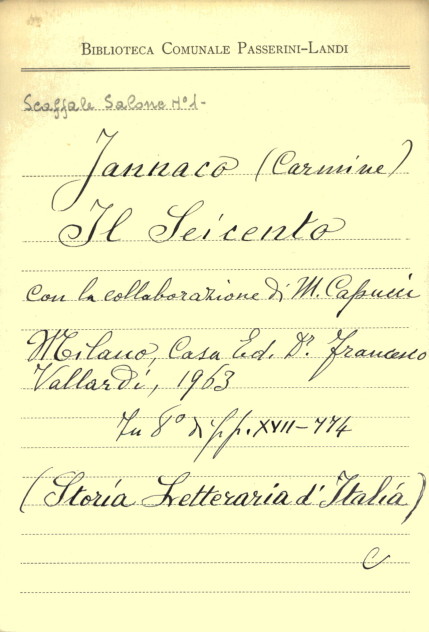 BIBLIOTECA COMUNALE PASSERINI-LANDI
Scaffale Salone N° 1-
Jannaco (Carmine)
Il Seicento
con la collaborazione di M. Capucci
Milano, Casa Ed. Dr. Francesco
Vallardi, 1963
In 8° di pp. XVII-774
(Storia Letteraria d'Italia)
C